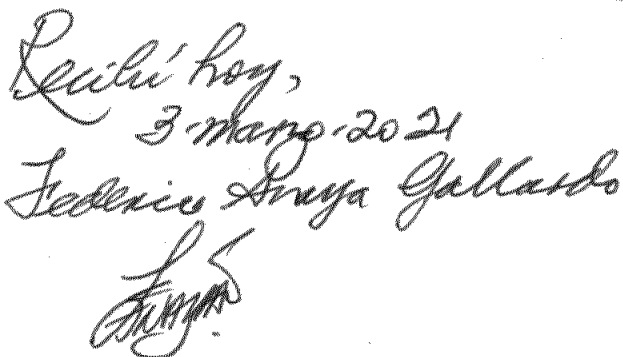 Recibí hoy,
3-marzo-2021
Federico Anaya Gallardo